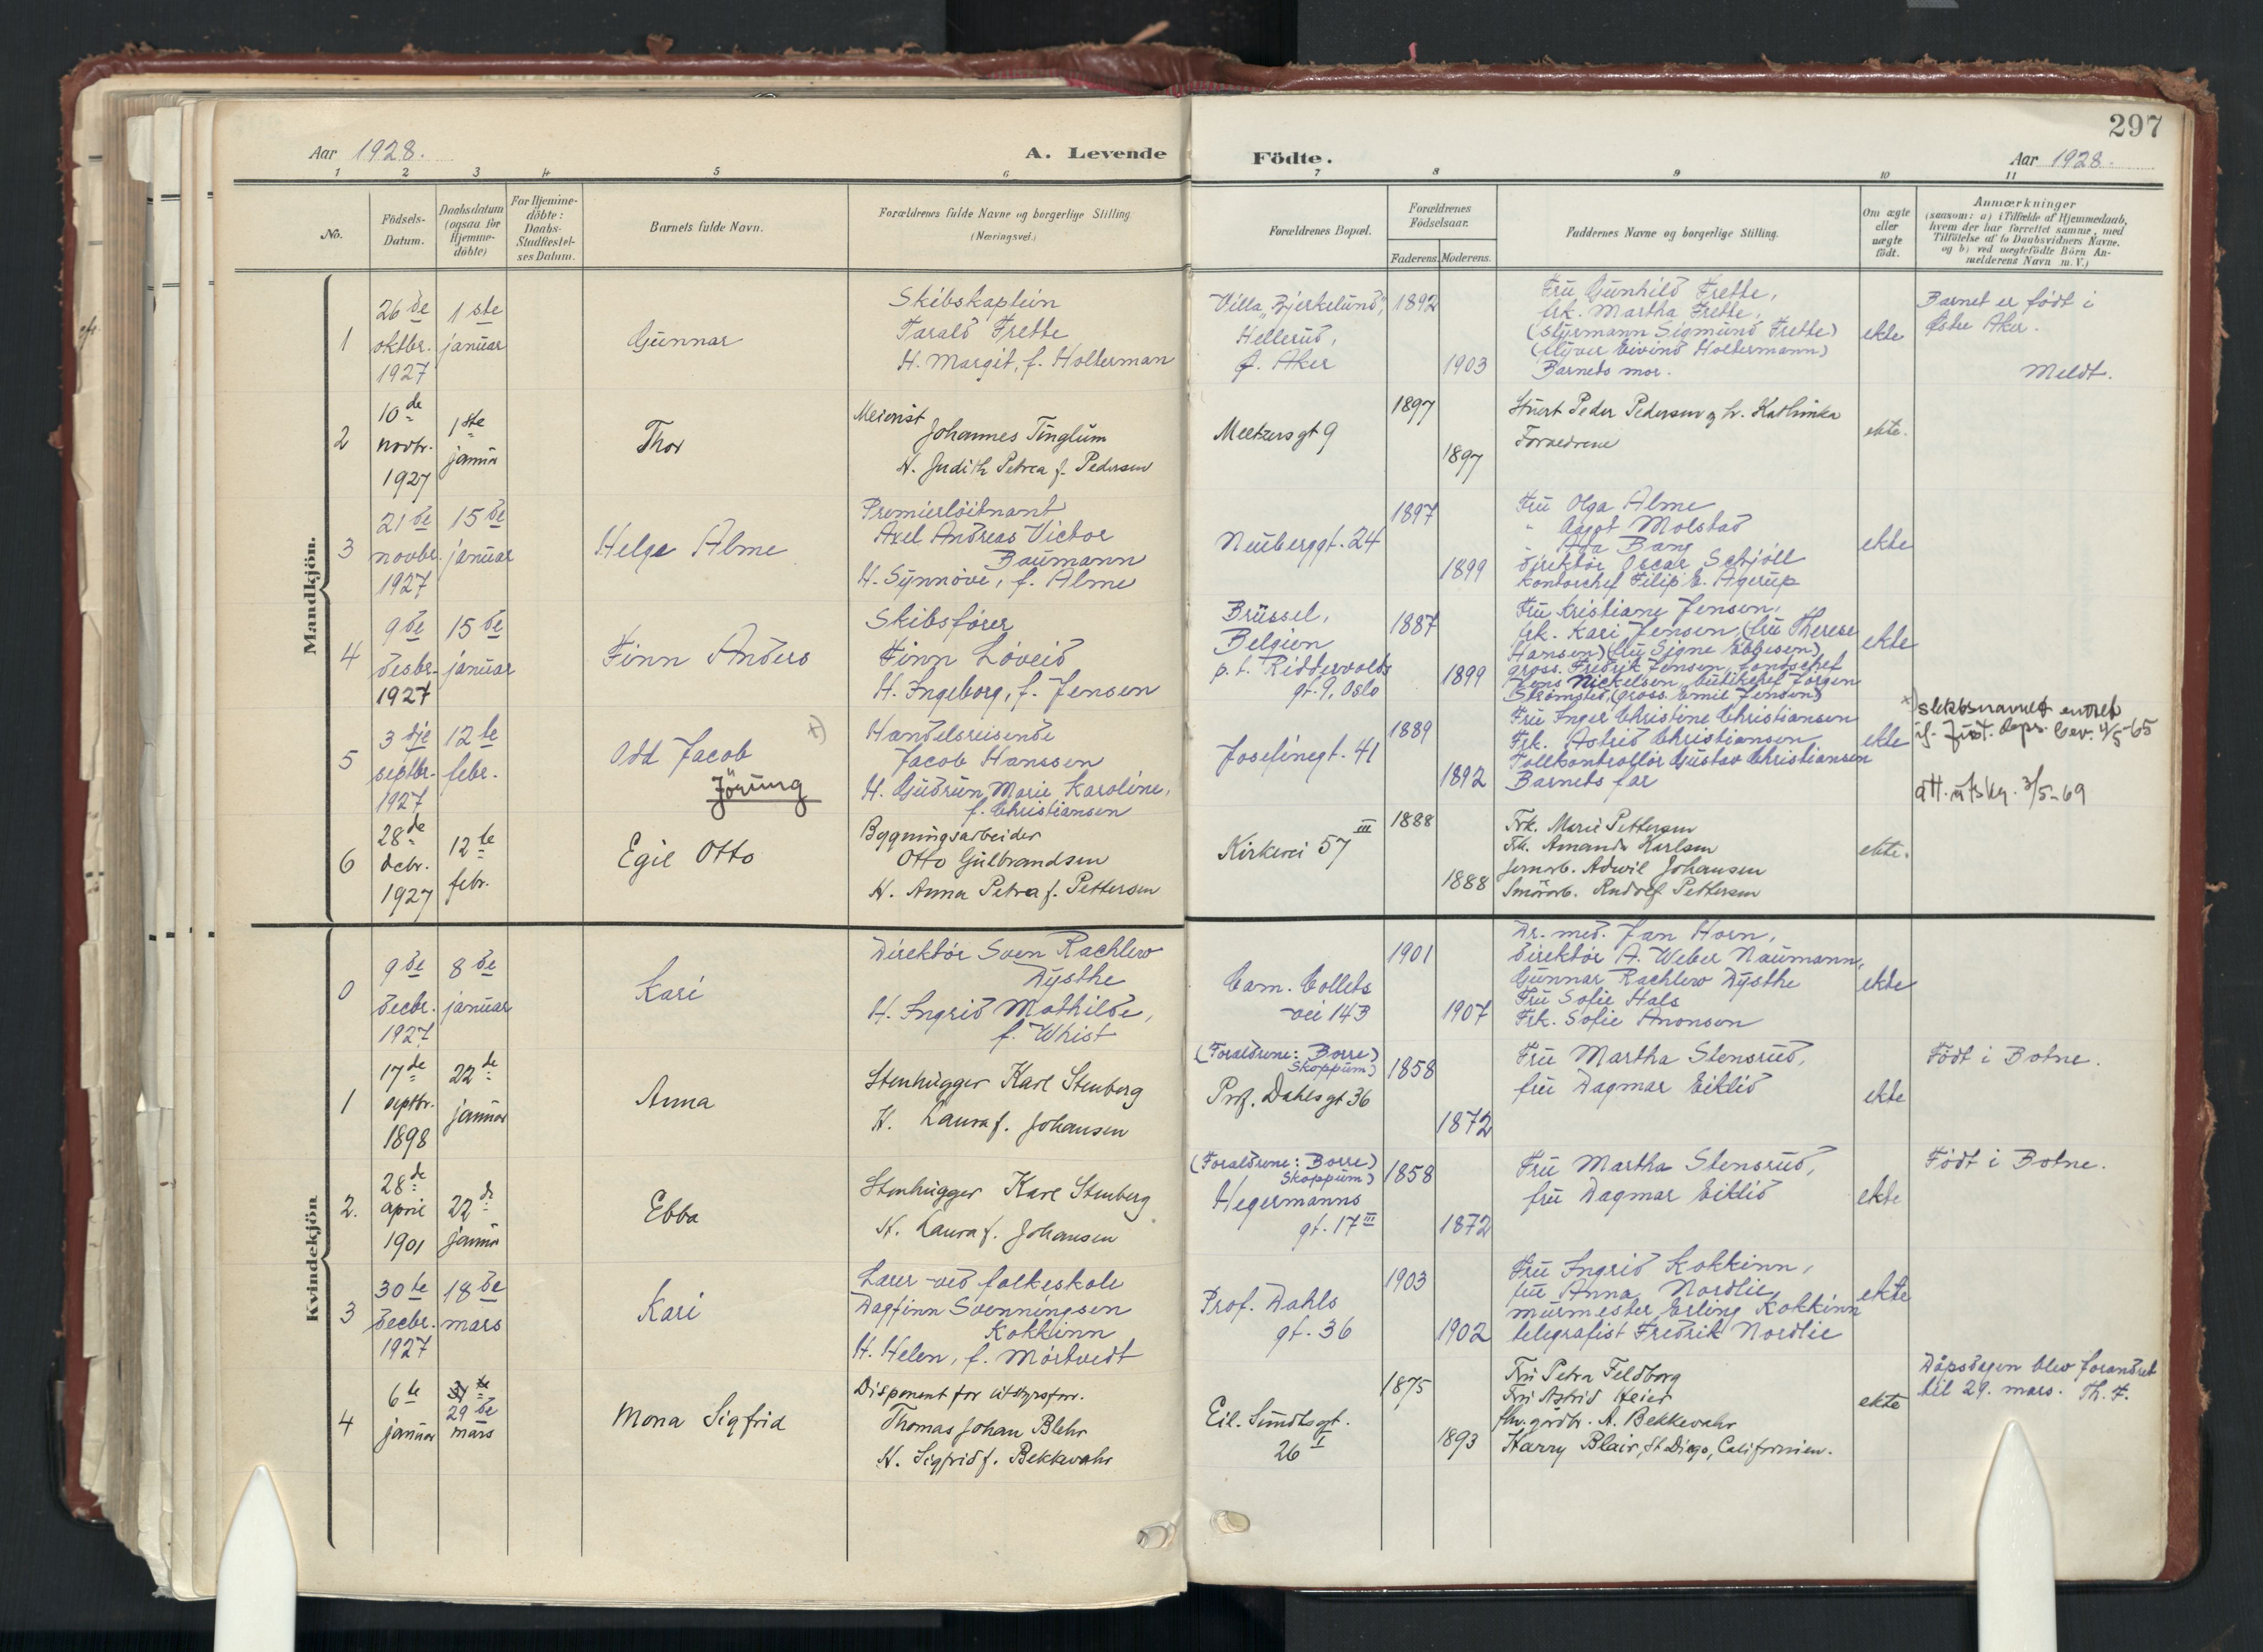 297
Aar 1928.
A. Levende
Födte.
Aar 1928.
1 2 3 4 5 6 7 8 9 10 11
No.
Födsels-
Datum.
Daabsdatum
(ogsaa for
Hjemme-
döbte)
For Hjemme-
döbte:
Daabs-
Stadfæstel-
ses Datum.
Barnets fulde Navn.
Forældrenes fulde Navne og borgerlige Stilling
(Næringsvei.)
Forældrenes Bopæl.
Forældrenes
Födselsaar.
Faderens. Moderens.
Faddernes Navne og borgerlige Stilling.
Om ægte
eller
uægte
födt.
Anmærkninger
(saasom: a) i Tilfælde af Hjemmedaab,
hvem der har forrettet samme, med
Tilföielse af to Daabsvidners Navne,
og b) ved uægtefödte Börn An-
melderens Navn m. V.)
Mandkjön.
1
26de
oktbr.
1927
1ste
januar
Gunnar
Skibskaptein
Tarald Frette
H. Margit, f. Holterman
Villa "Bjerkelund",
Hellerud,
Ø. Aker
1892
1903
Fru Gunhild Frette,
frk. Martha Frette,
(styrmann Sigmund Frette)
(flyver Eivind Holtermann)
Barnets mor.
ekte
Barnet er født i
Østre Aker.
Meldt.
2
10de
novbr.
1927
1ste
januar
Thor
Meierist
Johannes Tinglum
H. Judith Petrea f. Pedersen
Meltzersgt 9
1897
1897
Stuert Peder Pedersen og h. Kathinka
Foreldrene
ekte.
3
21de
novbr.
1927
15de
januar
Helge Alme
Premierløitnant
Axel Andreas Victor
Baumann
H. Synnøve, f. Alme
Neuberggt. 24
1897
1899
Fru Olga Alme
" Aagot Molstad
" Ada Bang
direktør Oscar Schjøll
kontorchef Filip E. Agerup
ekte
4
9de
desbr.
1927
15de
januar
Finn Anders
Skibsfører
Finn Løveid
H. Ingeborg, f. Jensen
Brüssel,
Belgien
p.t. Riddervolds
gt. 9, Oslo
1887
1899
Fru Kristiane Jensen,
frk. Kari Jensen, (fru Therese
Hansen) (fru Signe Ebbesen)
gross. Fredrik Jensen, kontorchef
Jens Nickelsen, butikchef Jørgen
Strømstid, (gross. Emil Jensen)
ekte
5
3dje
septbr.
1927
12te
febr.
Odd Jacob x)
Jörung
Handelsreisende
Jacob Hanssen
H. Gudrun Marie Karoline,
f. Christiansen
Josefinegt. 41
1889
1892
Fru Inger Christine Christiansen
Frk. Astrid Christiansen
Tollkontrollør Gustav Christiansen
Barnets far
ekte
x) slektsnavnet endret
if. Just. deps. bev. 4/5-65
att. utskr. 3/5-69
6
28de
decbr.
1927
12te
febr.
Egil Otto
Bygningsarbeider
Otto Gulbrandsen
H. Anna Petrea f. Pettersen
Kirkevei 57 III
1888
1888
Frk. Marie Pettersen
Frk. Amanda Karlsen
Jernarb. Adwil Johansen
Smörarb. Rudolf Pettersen
ekte.
Kvindekjön
0
9de
decbr.
1927
8de
januar
Kari
Direktør Sven Rachlew
Dysthe
H. Ingrid Mathilde,
f. Whist
Cam. Colletts
vei 143
1901
1907
Dr. med. Jan Horn,
direktør A. Weber Naumann,
Gunnar Rachlew Dysthe
Fru Sofie Hals
Frk. Sofie Anonsen
ekte
1
17de
septbr.
1898
22de
januar
Anna
Stenhugger Karl Stenberg
H. Laura f. Johansen
(Foreldrene: Borre)
Skoppum)
Prof. Dahlsgt 36
1858
1872
Fru Martha Stensrud,
fru Dagmar Eiklid
ekte
Født i Botne.
2.
28de
april
1901
22de
januar
Ebba
Stenhugger Karl Stenberg
H. Laura f. Johansen
(Foreldrene: Borre)
Skoppum)
Hegermanns
gt. 17 III
1858
1872
Fru Martha Stensrud,
fru Dagmar Eiklid
ekte
Født i Botne.
3
30te
decbr.
1927
18de
mars
Kari
Lærer ved folkeskole
Dagfinn Svenningsen
Kokkinn
H. Helen, f. Mørtvedt
Prof. Dahls
gt. 36
1903
1902
Fru Ingrid Kokkinn,
fru Anna Nordlie
murmester Erling Kokkinn
telegrafist Fredrik Nordlie
ekte
4
6te
januar
29de
mars
Mona Sigfrid
Disponent for utstyrsforr.
Thomas Johan Blehr
H. Sigfrid f. Bekkevahr
Eil. Sundtsgt.
26 I
1875
1893
Fru Petra Feldborg
Fru Astrid Heier
fhv. gårdbr. A. Bekkevahr
Harry Blair, St Diego, Californien.
ekte
Dåpsdagen blev forandret
til 29. mars. Th. F.